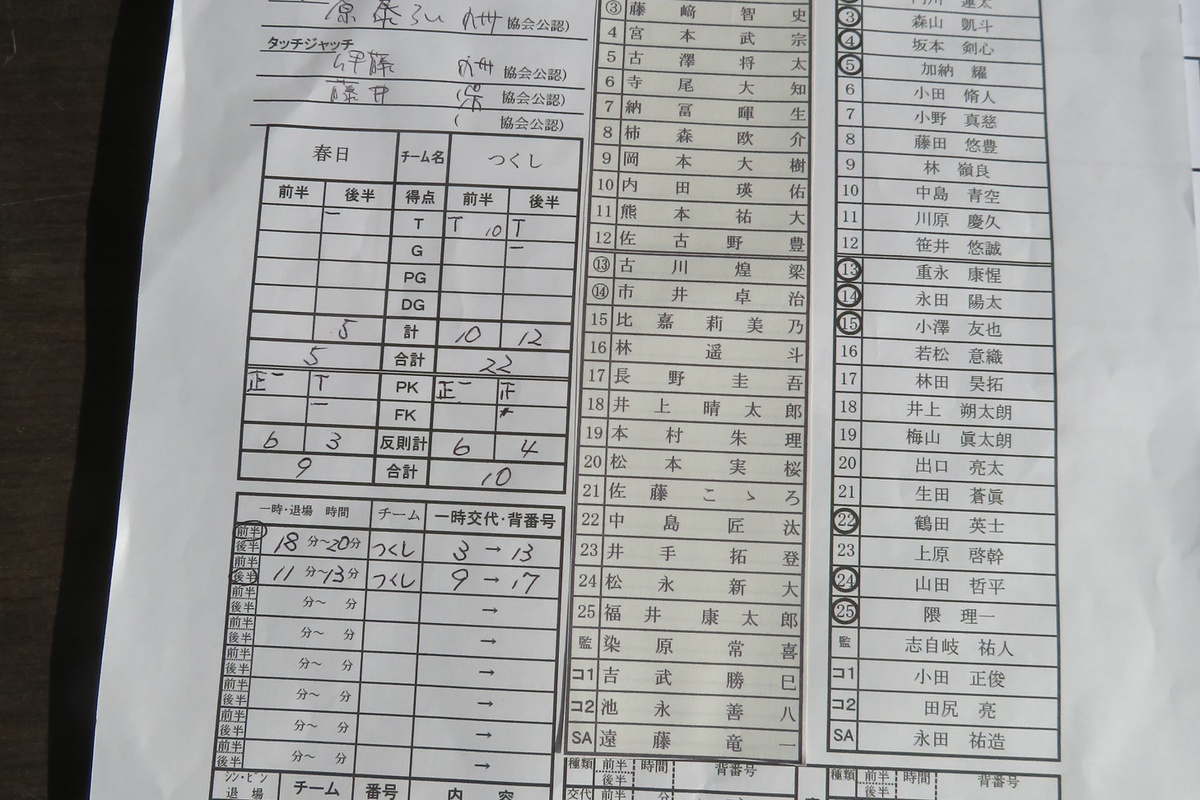 協会公認)
タッチジャッチ
伊藤 九州 協会公認)
藤井 協会公認)
( 協会公認)
春日 チーム名 つくし
前半 後半 得点 前半 後半
一 T T 10 T
G 一
PG
DG
5 計 10 12
5 合計 22
正一 T PK 正一 正
一 FK
6 3 反則計 6 4
9 合計 10
一時・退場 時間 チーム 一時交代・背番号
前半
後半 18 分～20分 つくし 3 → 13
前半
後半 11 分～13分 つくし 9 → 17
前半
後半 分～ 分 →
前半
後半 分～ 分 →
前半
後半 分～ 分 →
前半
後半 分～ 分 →
前半
後半 分～ 分 →
前半
後半 分～ 分 →
シン・ビン
退場 チーム 番号 内 容
③ 藤﨑智史
4 宮本武宗
5 古澤将太
6 寺尾大知
7 納冨暉生
8 柿森欧介
9 岡本大樹
10 内田瑛佑
11 熊本祐大
12 佐古野豊
⑬ 古川煌梁
⑭ 市井卓治
15 比嘉莉美乃
16 林遥斗
17 長野圭吾
18 井上晴太郎
19 本村朱理
20 松本実桜
21 佐藤こゝろ
22 中島匠汰
23 井手拓登
24 松永新大
25 福井康太郎
監 染原常喜
コ1 吉武勝巳
コ2 池永善八
SA 遠藤竜一
種類 前半 時間 背番号
後半
交代 前半 分
③ 森山 凱斗
④ 坂本 剣心
⑤ 加納 耀
6 小田 脩人
7 小野 真慈
8 藤田 悠豊
9 林 嶺良
10 中島 青空
11 川原 慶久
12 笹井 悠誠
⑬ 重永 康惺
⑭ 永田 陽太
⑮ 小澤 友也
16 若松 意織
17 林田 昊拓
18 井上 朔太朗
19 梅山 眞太朗
20 出口 亮太
21 生田 蒼眞
㉒ 鶴田 英士
23 上原 啓幹
㉔ 山田 哲平
㉕ 隈 理一
監 志自岐 祐人
コ1 小田 正俊
コ2 田尻 亮
SA 永田 祐造
種類 前半 時間 背番号
後半